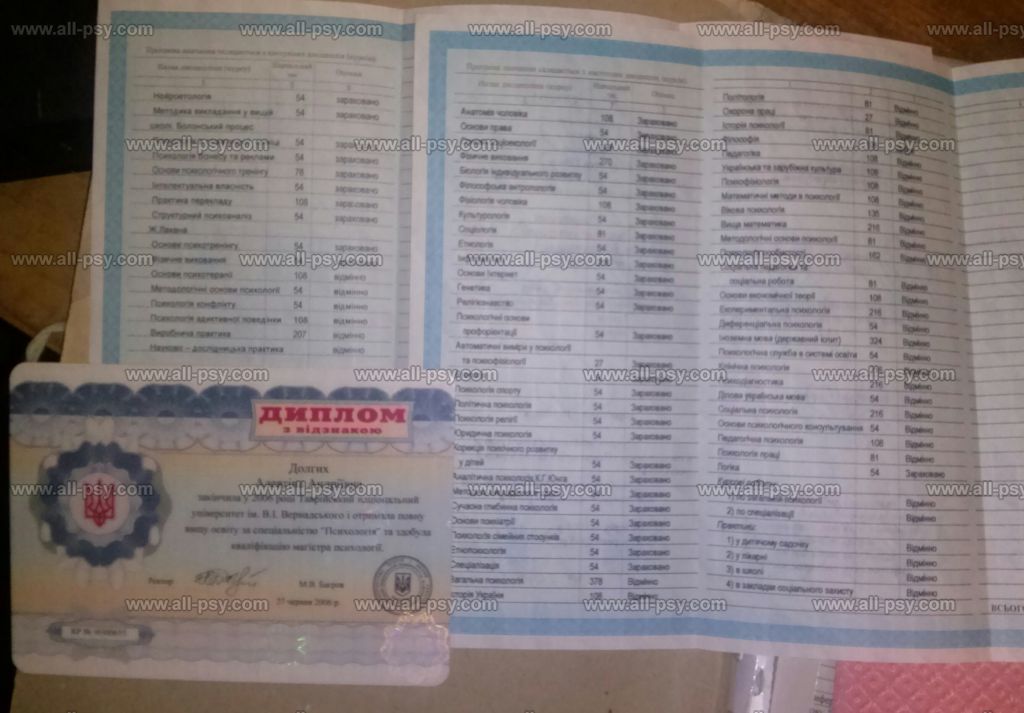 www.all-psy.com
Програма навчання складається з наступних дисциплін (курсів)
Назва дисципліни (курсу)
Оцінка
Нейроетологія 54 зараховано
Методика викладання у вищій 54 зараховано
школі. Болонський процес
54 зараховано
Психологія бізнесу та реклами 54 зараховано
Основи психологічного тренінгу 78 зараховано
Інтелектуальна власність 54 зараховано
Практика перекладу 108 зараховано
Структурний психоаналіз 54 зараховано
Ж.Лакана
Основи психотренінгу 54 зараховано
Фізичне виховання відмінно
Основи психотерапії 108 відмінно
Методологічні основи психології 54 відмінно
Психологія конфлікту 54 відмінно
Психологія адиктивної поведінки 108 відмінно
Виробнича практика 207 відмінно
Науково – дослідницька практика відмінно
Анатомія человіка 108 Зараховано
Основи права 54 Зараховано
Фізичне виховання 270 Зараховано
Біологія індивідуального розвитку 54 Зараховано
Філософська антропологія 54 Зараховано
Фізіологія человіка 108 Зараховано
Культурологія 54 Зараховано
Соціологія 81 Зараховано
Етнологія 54 Зараховано
Основи Інтернет 54 Зараховано
Генетика 54 Зараховано
Релігієзнавство 54 Зараховано
Психологічні основи
профорієнтації 54 Зараховано
Автоматичні виміри у психології
та психофізіології 27 Зараховано
Психологія спорту 54 Зараховано
Політична психологія 54 Зараховано
Психологія релігії 54 Зараховано
Юридична психологія 54 Зараховано
Корекція психічного розвитку
у дітей 54 Зараховано
Аналітична психологія К.Г Юнга 54 Зараховано
54 Зараховано
Сучасна глибинна психологія 54 Зараховано
Основи психіатрії 54 Зараховано
Психологія сімейних стосунків 54 Зараховано
Етнопсихологія 54 Зараховано
Спеціалізація 54 Зараховано
Загальна психологія 378 Відмінно
Історія України 108 Відмінно
Політологія 81 Відмінно
Охорона праці 27 Відмінно
Історія психології 81 Відмінно
Філософія
Педагогіка 108 Відмінно
Українська та зарубіжна культура 108 Відмінно
Психофізіологія 108 Відмінно
Математичні методи в психології 108 Відмінно
Вікова психологія 135 Відмінно
Вища математика 216 Відмінно
Методологічні основи психології 81 Відмінно
162 Відмінно
Соціальна педагогіка та
соціальна робота 81 Відмінно
Основи економічної теорії 108 Відмінно
Експериментальна психологія 216 Відмінно
Диференціальна психологія 54 Відмінно
Іноземна мова (державний іспит) 324 Відмінно
Психологічна служба в системі освіти 54 Відмінно
Клінічна психологія
Психодіагностика 216 Відмінно
Ділова українська мова 54 Відмінно
Соціальна психологія 216 Відмінно
Основи психологічного консультування 54 Відмінно
Педагогічна психологія 108 Відмінно
Психологія праці 81 Відмінно
Логіка 54 Зараховано
Курсові роботи:
1) по загальній психології Відмінно
2) по спеціалізації Відмінно
Практика:
1) у дитячому садочку Відмінно
2) у лікарні Відмінно
3) в школі Відмінно
4) в закладах соціального захисту Відмінно
ВСЬОГО
ДИПЛОМ
з відзнакою
Долгих
закінчила у 2006 році Таврійський національний
університет ім. В.І. Вернадського і отримала повну
вищу освіту за спеціальністю "Психологія" та здобула
кваліфікацію магістра психології.
Ректор М.В. Багров
27 червня 2006 р.